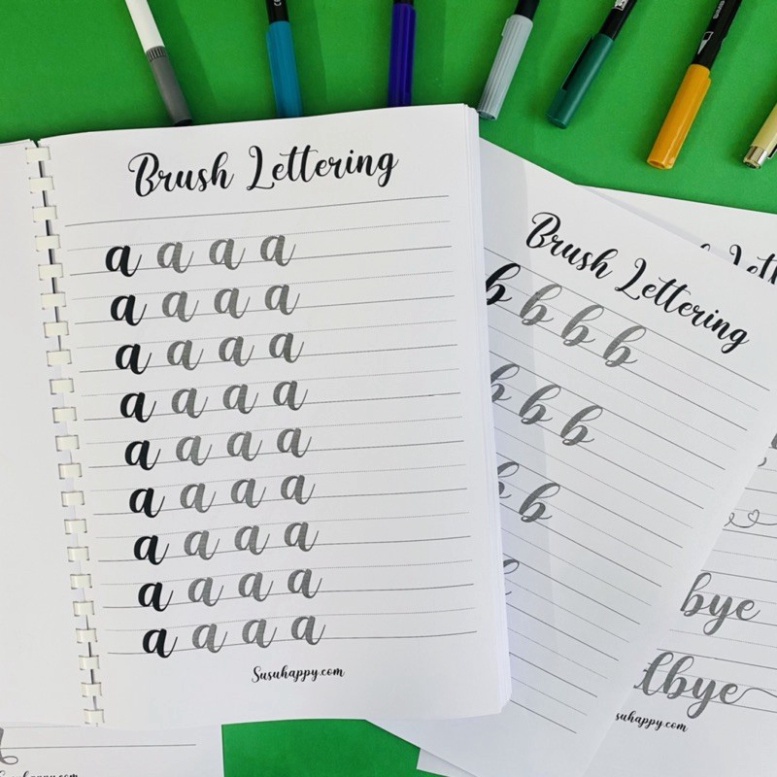 Brush Lettering
a a a a
a a a a
a a a a
a a a a
a a a a
a a a a
a a a a
a a a a
a a a a
Susuhappy.com
Brush Lettering
b b b b
b b b
b b
bye